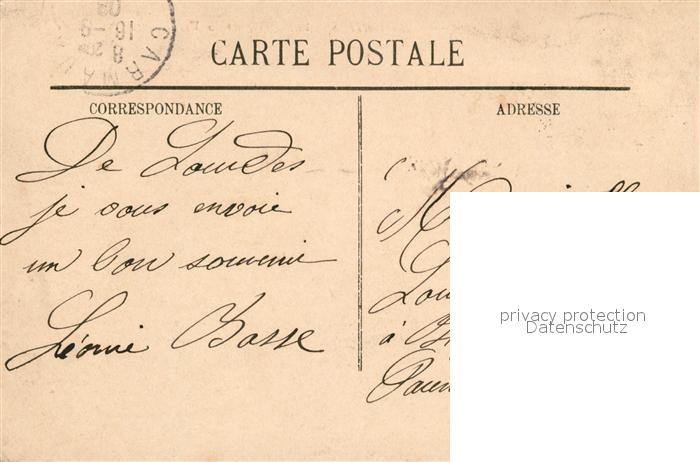 CARMAU
8
16-9
09
CARTE POSTALE
CORRESPONDANCE
ADRESSE
De Lourdes
je vous envoie
un bon souvenir
Léonie Basse
M
Lou
à
privacy protection
Datenschutz